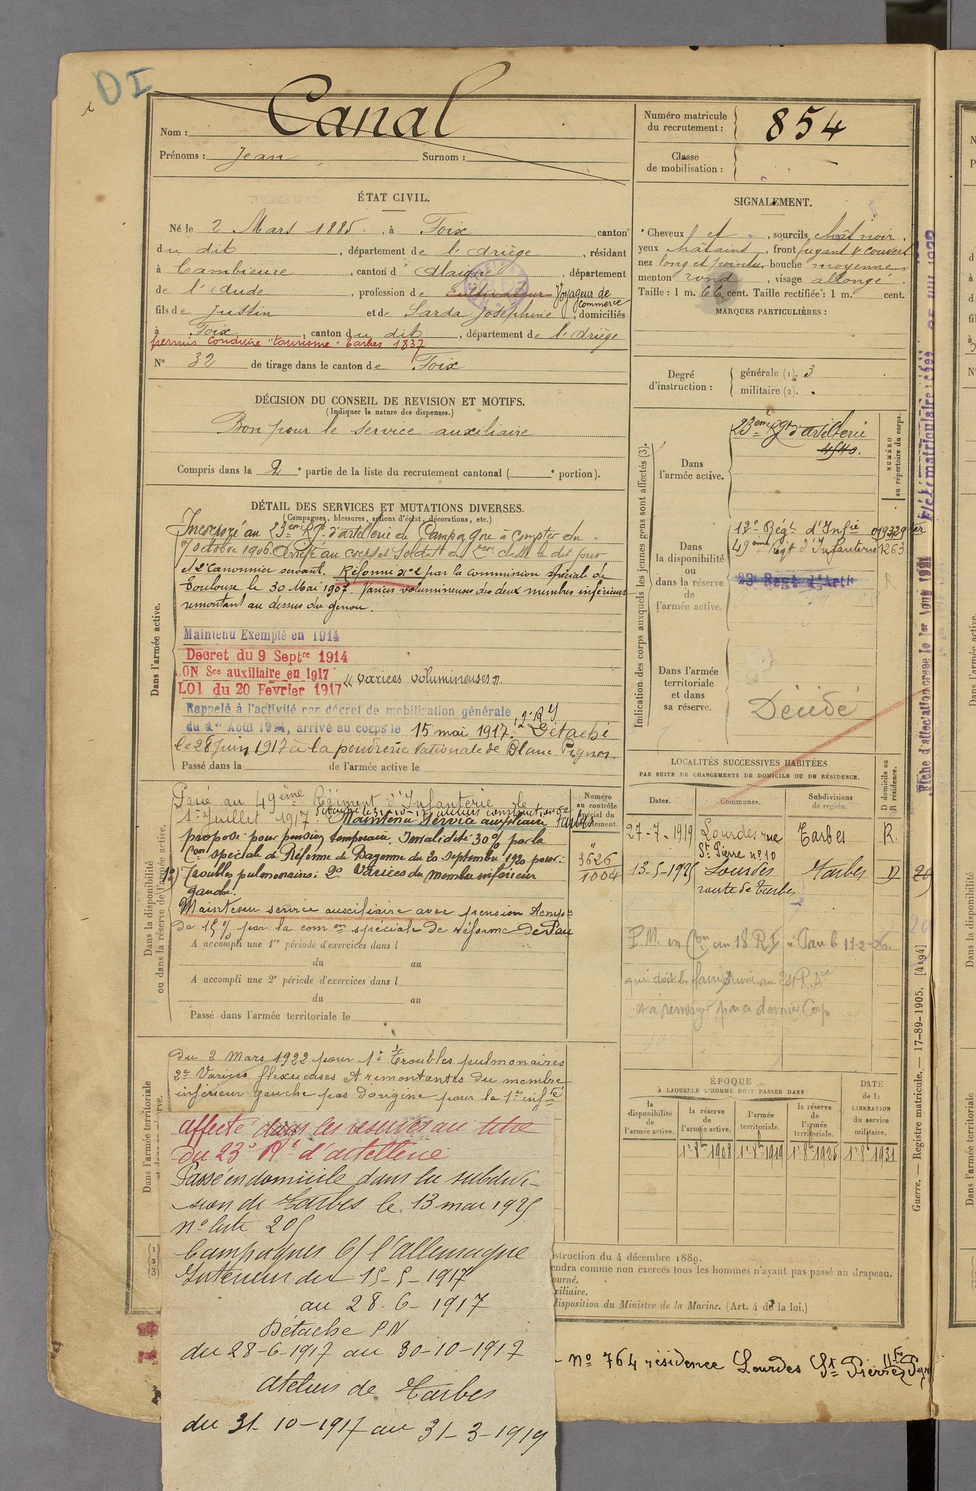 DI
Nom : Canal
Prénoms : Jean Surnom :
Numéro matricule du recrutement : 854
Classe de mobilisation :
ÉTAT CIVIL.
Né le 2 Mars 1885, à Foix canton
du dit, département de l'Ariège, résidant
à Cambieure, canton d'Alaigne, département
de l'Aude, profession de Cultivateur Voyageur de commerce
fils de Justin et de Sarda Joséphine, domiciliés
à Foix, canton du dit, département de l'Ariège
permis conduire "tourisme" Tarbes 1837
N° 32 de tirage dans le canton de Foix
SIGNALEMENT.
Cheveux et, sourcils chât noir,
yeux chatains, front fuyant & couvert
nez long et pointu, bouche moyenne,
menton rond, visage allongé.
Taille : 1 m. 66 cent. Taille rectifiée : 1 m. cent.
MARQUES PARTICULIÈRES :
Degré d'instruction : générale (1). 3
militaire (2).
DÉCISION DU CONSEIL DE REVISION ET MOTIFS.
(Indiquer la nature des dispenses.)
Bon pour le service auxiliaire
Compris dans la 2e partie de la liste du recrutement cantonal ( e portion).
DÉTAIL DES SERVICES ET MUTATIONS DIVERSES.
(Campagnes, blessures, actions d'éclat, décorations, etc.)
Dans l'armée active.
Incorporé au 23ème Rgt d'artillerie de Campagne à compter du
octobre 1906. Arrivé au corps et Soldat de 2ème classe le dit jour
et 2e Canonnier suivant. Réformé n°2 par la commission spéciale de
Toulouse le 30 Mai 1907. Varices volumineuses des deux membres inférieurs
remontant au dessus du genou.
Maintenu Exempté en 1914
Decret du 9 Septre 1914
ON Sce auxiliaire en 1917
LOI du 20 Février 1917 "varices volumineuses".
Rappelé à l'activité par décret de mobilisation générale
du 1er Août 1914, arrivé au corps le 15 mai 1917. Détaché
le 28 juin 1917 à la poudrerie Nationale de Blanc Pignon.
Passé dans la de l'armée active le
Indication des corps auxquels les jeunes gens sont affectés (3).
NUMÉRO au répertoire du corps.
Dans l'armée active.
23ème Rgt d'artillerie
4540.
Dans la disponibilité ou dans la réserve de l'armée active.
12e Régt d'Infie
49ème Rgt d'Infanterie 1263
23e Regt d'Artie
R
Dans l'armée territoriale et dans sa réserve.
Décédé
Dans la disponibilité ou dans la réserve de l'armée active.
Passé au 49ème Régiment d'Infanterie le
1er Juillet 1917. Maintenu Service auxiliaire
proposé pour pension temporaire. Invalidité 30% par la
Con spéciale de Réforme de Bayonne du 20 septembre 1920 pour :
1°) Troubles pulmonaires. 2° Varices du membre inférieur
gauche.
Maintenu service auxiliaire avec pension temp
de 15% par la comon spéciale de réforme de Pau
A accompli une 1re période d'exercices dans l
du au
A accompli une 2e période d'exercices dans l
du au
Passé dans l'armée territoriale le
Numéro au contrôle spécial du recrutement.
Tarbes
3626
1004
LOCALITÉS SUCCESSIVES HABITÉES
PAR SUITE DE CHANGEMENTS DE DOMICILE OU DE RÉSIDENCE.
Dates. Communes. Subdivisions de région. D domicile ou R résidence.
27-7-1919 Lourdes rue St Pierre n° 10 Tarbes R
13-5-1925 Lourdes route de Tarbes Tarbes D
Dans l'armée territoriale
du 2 Mars 1922 pour 1° Troubles pulmonaires
2° Varices flexueuses et remontantes du membre
inférieur gauche pas d'origine pour la 1re infté
affecté dans les réserves au titre
du 23e Rt d'artillerie
Passé en domicile dans la subdivi-
sion de Tarbes le 13 mai 1925
n° liste 205
Campagnes C/ l'Allemagne
Intérieur du 15-5-1917
au 28-6-1917
Détaché PN
du 28-6-1917 au 30-10-1917
Ateliers de Tarbes
du 31-10-1917 au 31-3-1919
ÉPOQUE
À LAQUELLE L'HOMME DOIT PASSER DANS
la disponibilité de l'armée active.
la réserve de l'armée active.
l'armée territoriale.
la réserve de l'armée territoriale.
DATE de la LIBÉRATION du service militaire.
1er 8bre 1908 1er 8bre 1919 1er 8bre 1925 1er 8bre 1931
struction du 4 décembre 1889.
endra comme non exercés tous les hommes n'ayant pas passé au drapeau.
ourné.
xiliaire.
disposition du Ministre de la Marine. (Art. 4 de la loi.)
n° 764 résidence Lourdes St Pierre
Guerre. — Registre matricule. — 17-89-1905. [4194]